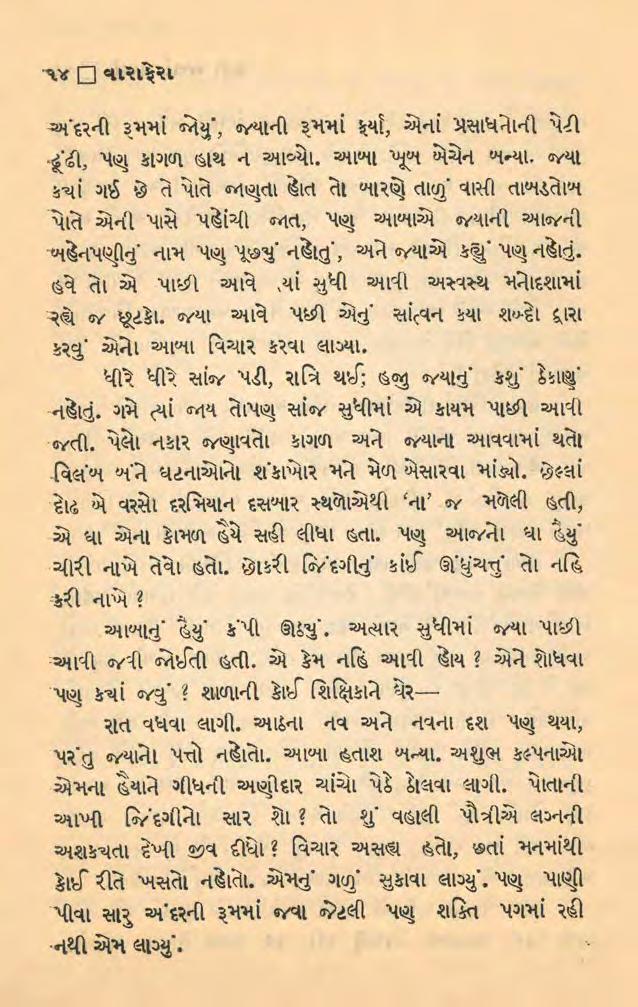 ૧૪ □ વારાફેરા
અંદરની રૂમમાં જોયું, જ્યાની રૂમમાં ફર્યા, એનાં પ્રસાધનોની પેટી
ઢૂંઢી, પણ કાગળ હાથ ન આવ્યો. આબા ખૂબ બેચેન બન્યા. જ્યા
કયાં ગઈ છે તે પોતે જાણતા હોત તો બારણે તાળું વાસી તાબડતોબ
પોતે એની પાસે પહોંચી જાત, પણ આબાએ જ્યાની આજની
બહેનપણીનું નામ પણ પૂછ્યું નહોતું, અને જ્યાએ કહ્યું પણ નહોતું.
હવે તો એ પાછી આવે ત્યાં સુધી આવી અસ્વસ્થ મનોદશામાં
રહ્યે જ છૂટકો. જ્યા આવે પછી એનું સાંત્વન કયા શબ્દો દ્વારા
કરવું એનો આબા વિચાર કરવા લાગ્યા.
ધીરે ધીરે સાંજ પડી, રાત્રિ થઈ; હજી જ્યાનું કશું ઠેકાણું
નહોતું. ગમે ત્યાં જાય તોપણ સાંજ સુધીમાં એ કાયમ પાછી આવી
જતી. પેલો નકાર જણાવતો કાગળ અને જ્યાના આવવામાં થતો
વિલંબ બંને ઘટનાઓનો શંકાખોર મને મેળ બેસારવા માંડ્યો. છેલ્લાં
દોઢ બે વરસો દરમિયાન દસબાર સ્થળોએથી ‘ના’ જ મળેલી હતી,
એ ઘા એના કોમળ હૈયે સહી લીધા હતા. પણ આજનો ઘા હૈયું
ચીરી નાખે તેવો હતો. છોકરી જિંદગીનું કાંઈ ઊંધુંચત્તું તો નહિ
કરી નાખે ?
આબાનું હૈયું કંપી ઊઠ્યું. અત્યાર સુધીમાં જ્યા પાછી
આવી જવી જોઈતી હતી. એ કેમ નહિ આવી હોય ? એને શોધવા
પણ કયાં જવું ? શાળાની કોઈ શિક્ષિકાને ઘેર—
રાત વધવા લાગી. આઠના નવ અને નવના દશ પણ થયા,
પરંતુ જ્યાનો પત્તો નહોતો. આબા હતાશ બન્યા. અશુભ કલ્પનાઓ
એમના હૈયાને ગીધની અણીદાર ચાંચો પેઠે ઠોલવા લાગી. પોતાની
આખી જિંદગીનો સાર શો ? તો શું વહાલી પૌત્રીએ લગ્નની
અશકયતા દેખી જીવ દીધો ? વિચાર અસહ્ય હતો, છતાં મનમાંથી
કોઈ રીતે ખસતો નહોતો. એમનું ગળું સુકાવા લાગ્યું. પણ પાણી
પીવા સારુ અંદરની રૂમમાં જવા જેટલી પણ શક્તિ પગમાં રહી
નથી એમ લાગ્યું.